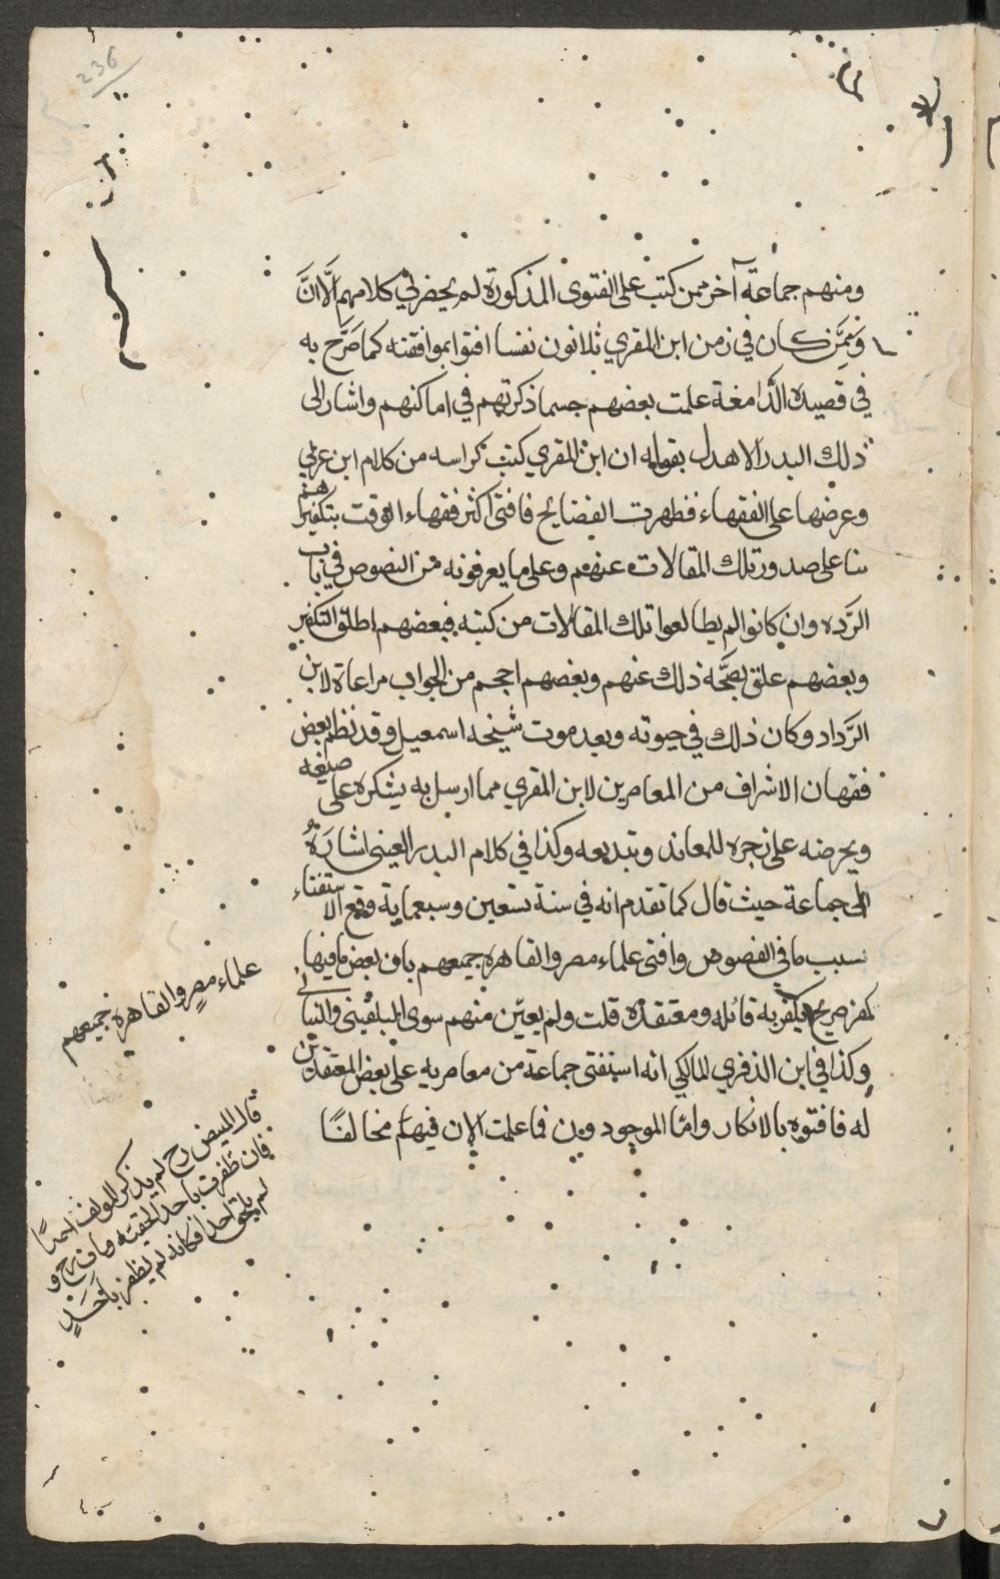 236
ومنهم جماعة آخر ممن كتب على الفتوى المذكورة لم يحضرني كلامهم الآن
وممن كان في زمن ابن المقري ثلاثون نفسا افتوا بموافقته كما صرح به
في قصيدة الدامغة علمت بعضهم جسما ذكرتهم في اماكنهم واشار الى
ذلك البدر الاهدل بقوله ان ابن المقري كتب كراسه من كلام ابن عربي
وعرضها على الفقهاء فظهرت الفضائح فافتى اكثر فقهاء الوقت بتكفيرهم
بنا على صدور تلك المقالات عنهم وعلى ما يعرفونه من النصوص في باب
الرده وان كانوا لم يطالعوا تلك المقالات من كتبه فبعضهم اطلق التكفير
وبعضهم علق بصحة ذلك عنهم وبعضهم احجم من الجواب مراعاة لابن
الرداد وكان ذلك في حيوته وبعد موت شيخه اسمعيل وقد نظم بعض
فقهان الاشراف من المعاصرين لابن المقري مما ارسل به يشكره على صنيعه
ويحرضه على زجره للمعاند وتبديعه وكذا في كلام البدر العيني اشارة
الى جماعة حيث قال كما تقدم انه في سنة تسعين وسبعماية وقع الاستفتاء
بسبب ما في الفصوص وافتى علماء مصر والقاهرة جميعهم بان بعض ما فيها
كفر صريح يكفر به قائله ومعتقده قلت ولم يعين منهم سوى البلقيني والتباني
وكذا في ابن الذفري المالكي انه استفتى جماعة من معاصريه على بعض المعتقدين
له فافتوه بالانكار واما الموجودون فما علمت الان فيهم مخالفا
علماء مصر والقاهرة جميعهم
قال المبيض رح لم يذكر المولف احدا
فان ظفرت باحد الحقته وان
لم يلحق احدا فكانه لم يظفر باحد